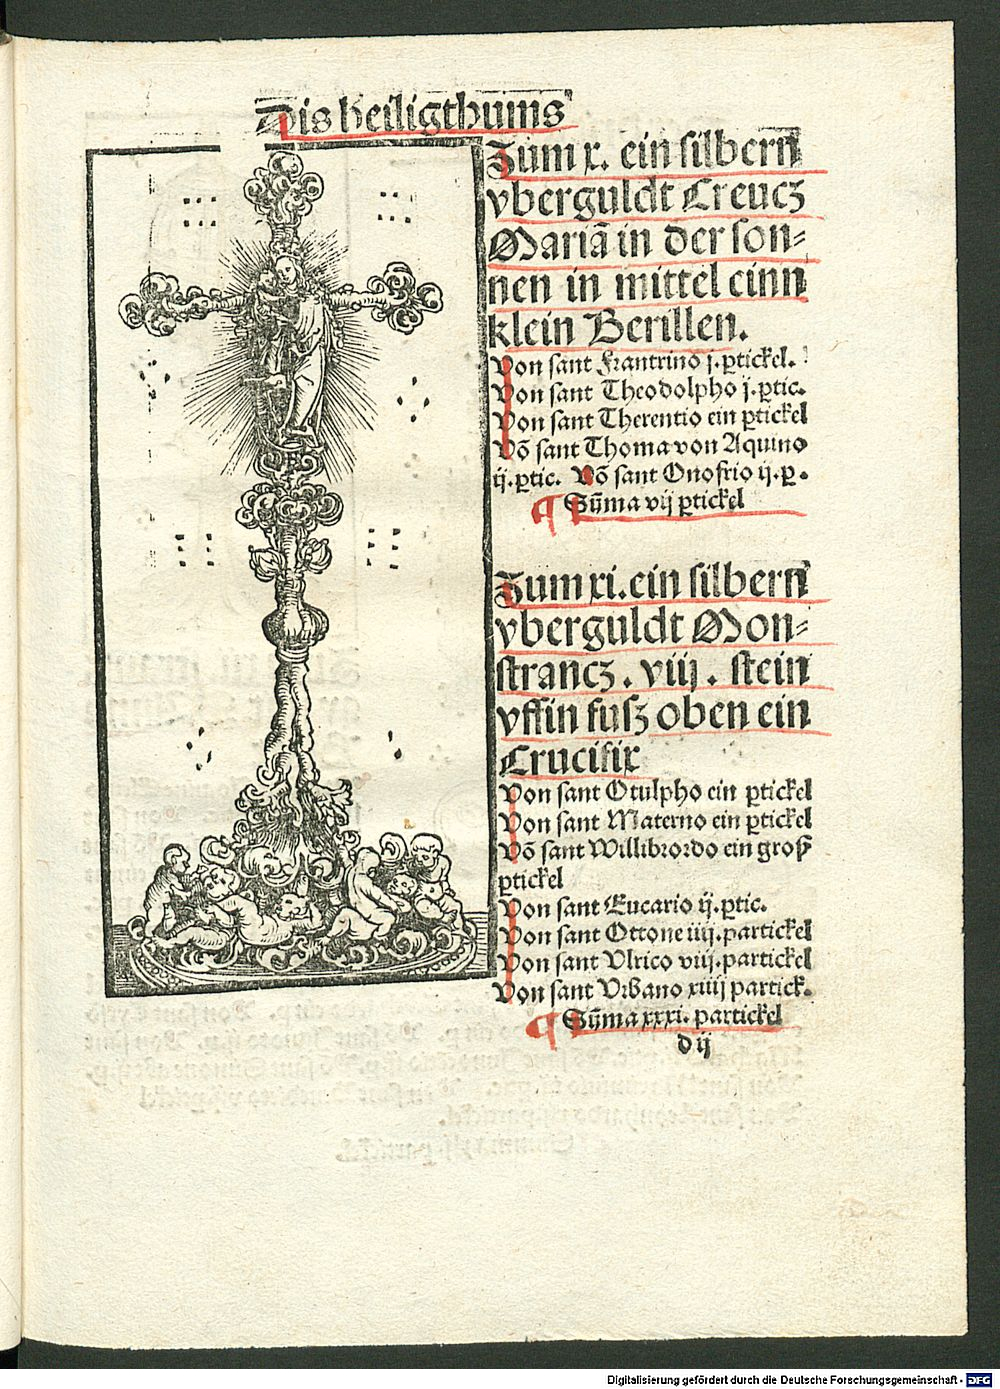 Dis heiligthums
Zum x. ein silbern̄
vberguldt Creucz
Mariā in der son⸗
nen in mittel einn
klein Berillen.
Von sant Frantrino j. ꝑtickel.
Von sant Theodolpho j. ꝑtic.
Von sant Therentio ein ꝑtickel
Vō sant Thoma von Aquino
ij. ꝑtic. Vō sant Onofrio ij. ꝑ.
¶ Sūma vij ꝑtickel
Zum xi. ein silbern̄
vberguldt Mon⸗
strancz. viij. stein
vffin fusz oben ein
Crucifix
Von sant Otulpho ein ꝑtickel
Von sant Materno ein ꝑtickel
Vō sant Willibrordo ein groß
ꝑtickel
Von sant Eucario ij. ꝑtic.
Von sant Ottone iiij. partickel
Von sant Vlrico viij. partickel
Von sant Vrbano xiiij partick.
¶ Sūma xxxi. partickel
d ij
Digitalisierung gefördert durch die Deutsche Forschungsgemeinschaft - DFG